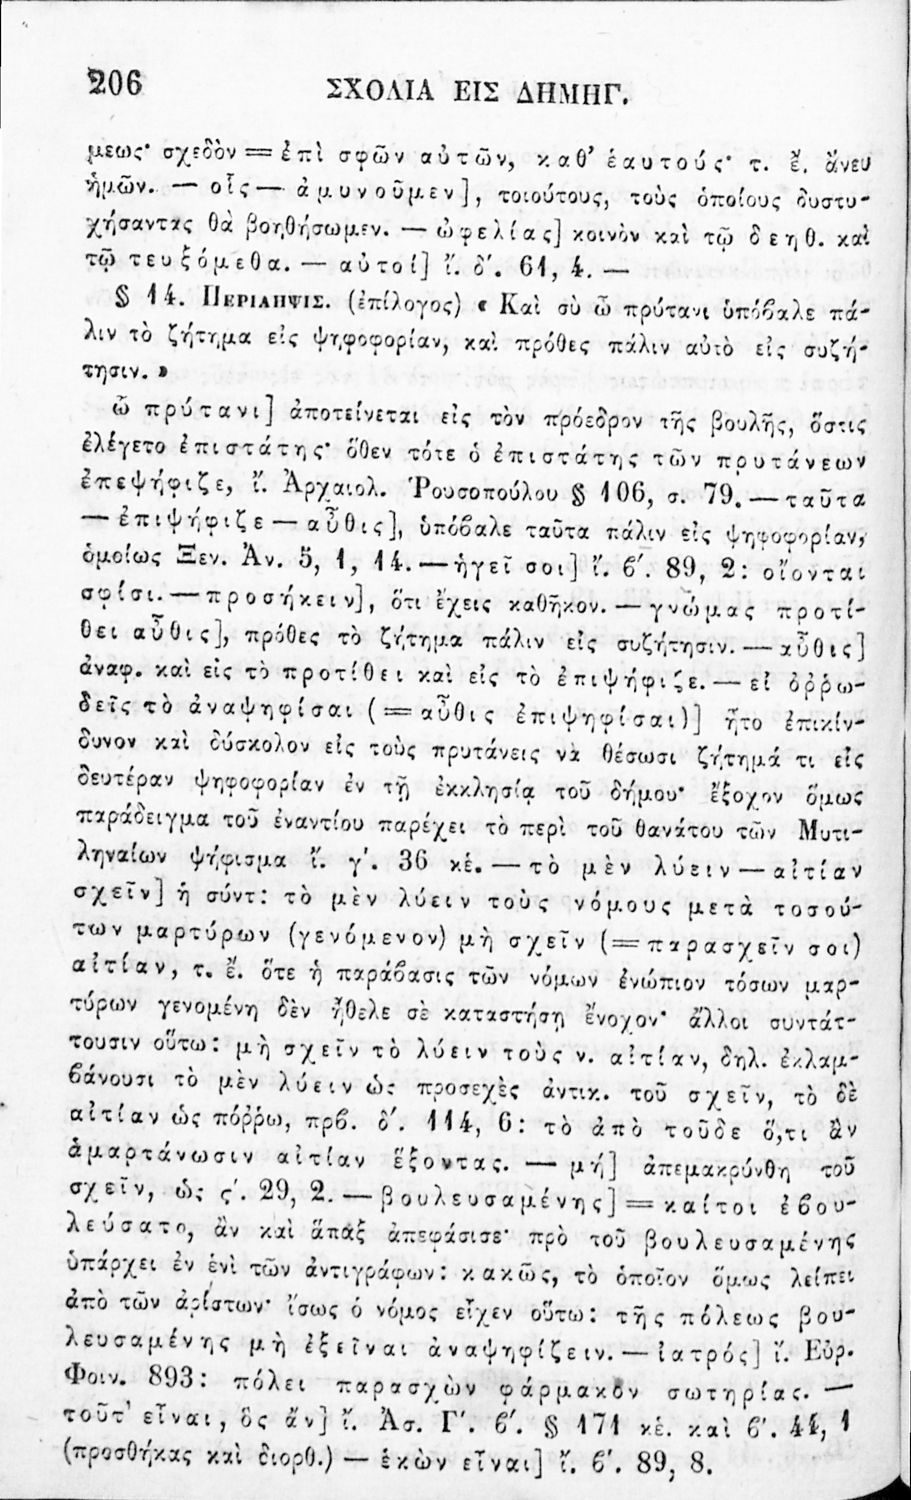 206 ΣΧΟΛΙΑ ΕΙΣ ΔΗΜΗΓ.
μεως· σχεδὸν = ἐπὶ σφῶν αὐτῶν, καθ’ ἑαυτούς· τ. ἔ. ἄνευ
ἡμῶν. — οἷς — ἀμυνοῦμεν], τοιούτους, τοὺς ὁποίους δυστυ-
χήσαντας θὰ βοηθήσωμεν. — ὠφελίας] κοινὸν καὶ τῷ δεηθ. καὶ
τῷ τευξόμεθα. — αὐτοί] ἴ. δ΄. 61, 4. —
§ 14. ΠΕΡΙΛΗΨΙΣ. (ἐπίλογος) « Καὶ σὺ ὦ πρύτανι ὑπόβαλε πά-
λιν τὸ ζήτημα εἰς ψηφοφορίαν, καὶ πρόθες πάλιν αὐτὸ εἰς συζή-
τησιν. »
ὦ πρύτανι] ἀποτείνεται εἰς τὸν πρόεδρον τῆς βουλῆς, ὅστις
ἐλέγετο ἐπιστάτης· ὅθεν τότε ὁ ἐπιστάτης τῶν πρυτάνεων
ἐπεψήφιζε, ἴ. Ἀρχαιολ. Ῥουσοπούλου § 106, σ. 79. — ταῦτα
— ἐπιψήφιζε — αὖθις], ὑπόβαλε ταῦτα πάλιν εἰς ψηφοφορίαν,
ὁμοίως Ξεν. Ἀν. 5, 1, 14. — ἡγεῖ σοι] ἴ. ϐ΄. 89, 2: οἴονται
σφίσι. — προσήκειν], ὅτι ἔχεις καθῆκον. — γνώμας προτί-
θει αὖθις], πρόθες τὸ ζήτημα πάλιν εἰς συζήτησιν. — αὖθις]
ἀναφ. καὶ εἰς τὸ προτίθει καὶ εἰς τὸ ἐπιψήφιζε. — εἰ ὀῤῥω-
δεῖς τὸ ἀναψηφίσαι (= αὖθις ἐπιψηφίσαι)] ἦτο ἐπικίν-
δυνον καὶ δύσκολον εἰς τοὺς πρυτάνεις νὰ θέσωσι ζήτημά τι εἰς
δευτέραν ψηφοφορίαν ἐν τῇ ἐκκλησίᾳ τοῦ δήμου· ἔξοχον ὅμως
παράδειγμα τοῦ ἐναντίου παρέχει τὸ περὶ τοῦ θανάτου τῶν Μυτι-
ληναίων ψήφισμα ἴ. γ΄. 36 κἑ. — τὸ μὲν λύειν — αἰτίαν
σχεῖν] ἡ σύντ: τὸ μὲν λύειν τοὺς νόμους μετὰ τοσού-
των μαρτύρων (γενόμενον) μὴ σχεῖν (= παρασχεῖν σοι)
αἰτίαν, τ. ἔ. ὅτε ἡ παράβασις τῶν νόμων ἐνώπιον τόσων μαρ-
τύρων γενομένη δὲν ἤθελε σὲ καταστήσῃ ἔνοχον· ἄλλοι συντάτ-
τουσιν οὕτω: μὴ σχεῖν τὸ λύειν τοὺς ν. αἰτίαν, δηλ. ἐκλαμ-
βάνουσι τὸ μὲν λύειν ὡς προσεχὲς ἀντικ. τοῦ σχεῖν, τὸ δὲ
αἰτίαν ὡς πόῤῥω, πρβ. δ΄. 114, 6: τὸ ἀπὸ τοῦδε ὅ,τι ἂν
ἁμαρτάνωσιν αἰτίαν ἕξοντας. — μή] ἀπεμακρύνθη τοῦ
σχεῖν, ὡς ς΄. 29, 2. — βουλευσαμένης] = καίτοι ἐβου-
λεύσατο, ἂν καὶ ἅπαξ ἀπεφάσισε· πρὸ τοῦ βουλευσαμένης
ὑπάρχει ἐν ἑνὶ τῶν ἀντιγράφων: κακῶς, τὸ ὁποῖον ὅμως λείπει
ἀπὸ τῶν ἀρίστων· ἴσως ὁ νόμος εἶχεν οὕτω: τῆς πόλεως βου-
λευσαμένης μὴ ἐξεῖναι ἀναψηφίζειν. — ἰατρός] ἴ. Εὐρ.
Φοιν. 893: πόλει παρασχὼν φάρμακον σωτηρίας. —
τοῦτ’ εἶναι, ὃς ἄν] ἴ. Ἀσ. Γ΄. ϐ΄. § 171 κἑ. καὶ ϐ΄. 44, 1
(προσθήκας καὶ διορθ.) — ἑκὼν εἶναι] ἴ. ϐ΄. 89, 8.